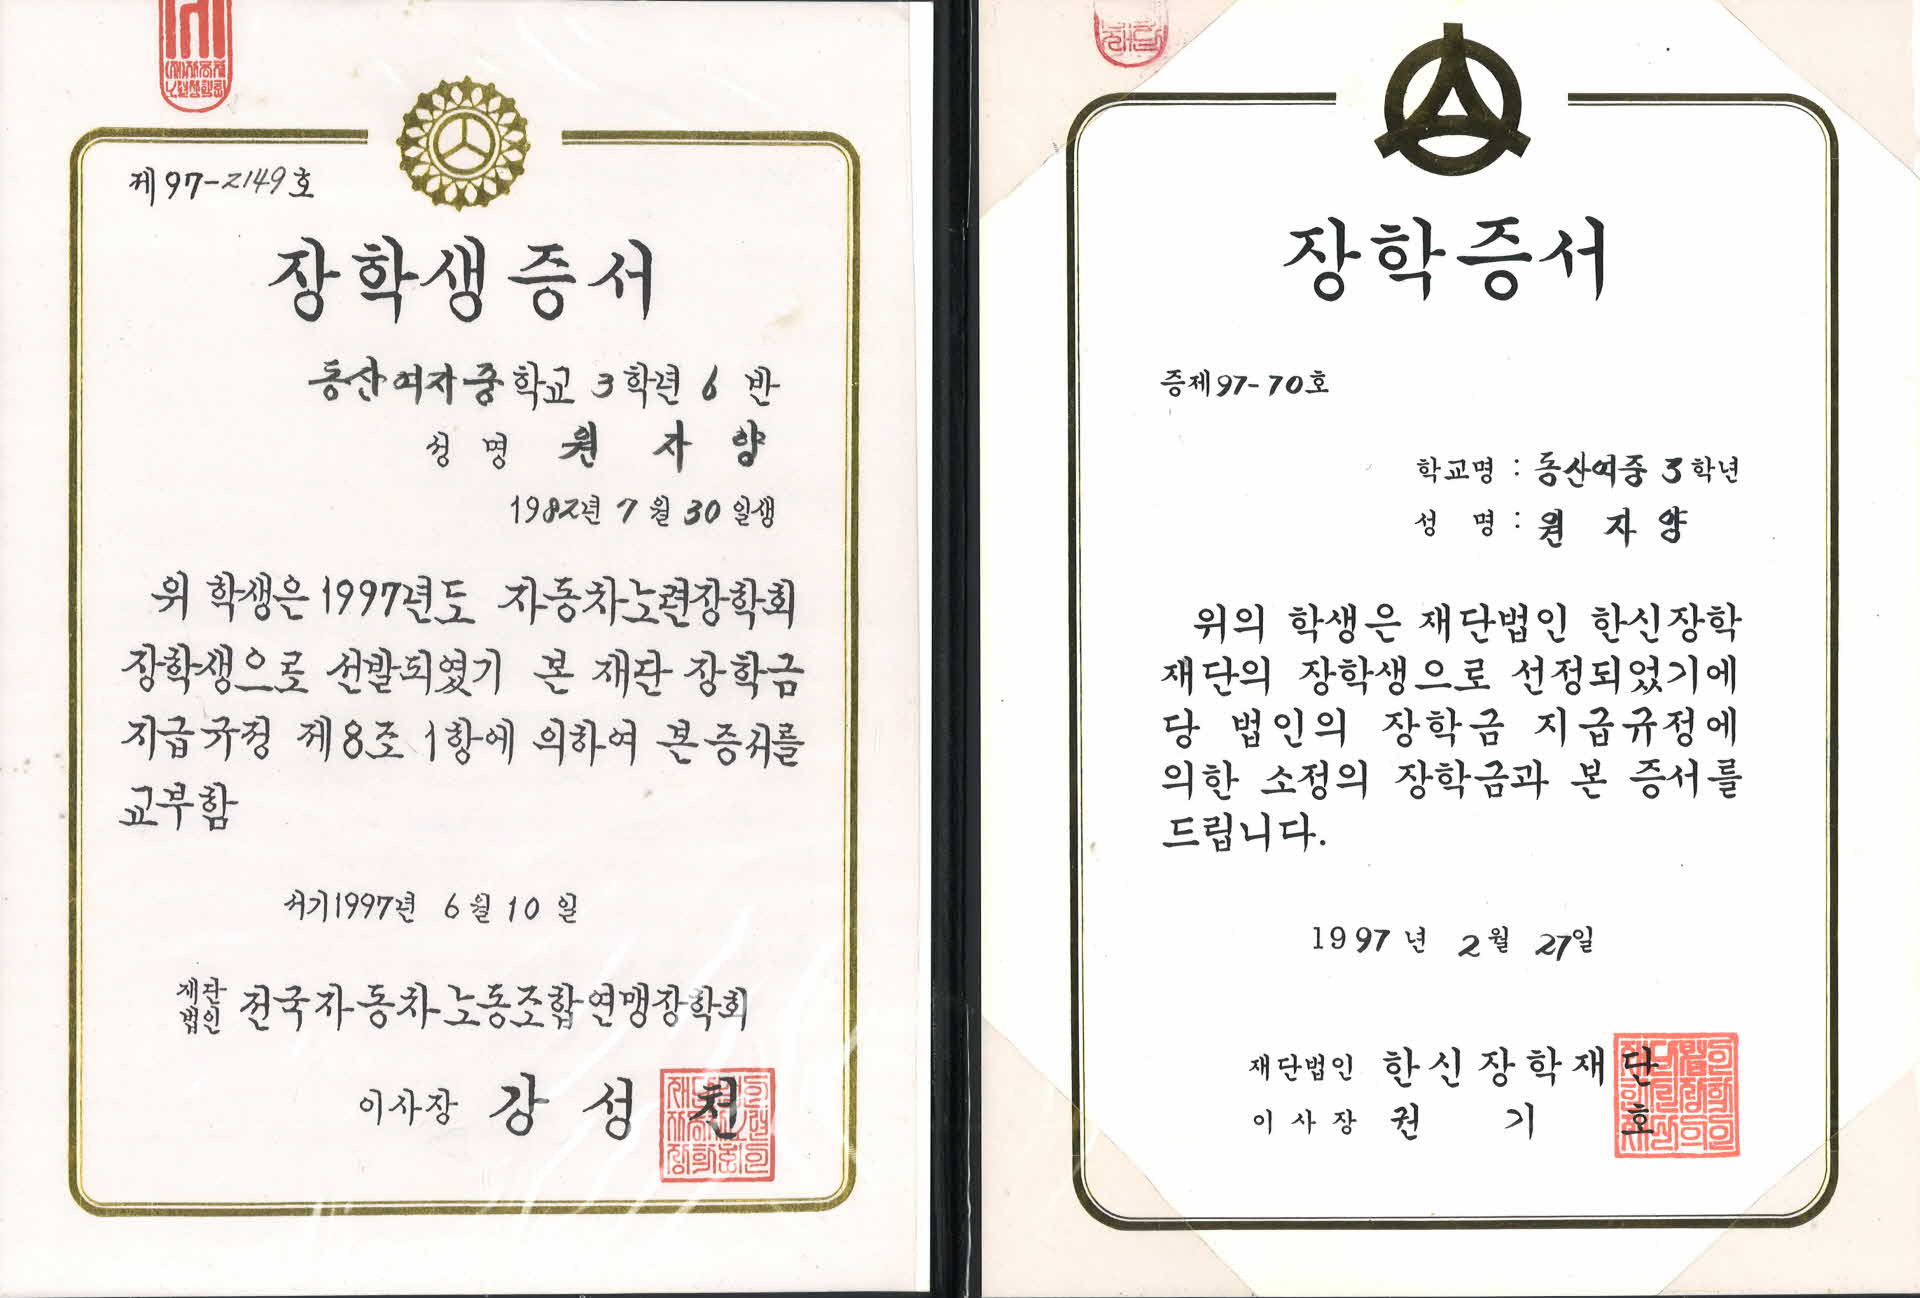 제 97-2149 호
장학생증서
동산여자중학교 3학년 6 반
성 명 원 자 양
1982년 7 월 30 일생
위 학생은 1997년도 자동차노련장학회
장학생으로 선발되였기 본 재단 장학금
지급규정 제8조 1항에 의하여 본 증서를
교부함
서기1997년 6월 10 일
재단법인 전국자동차노동조합연맹장학회
이사장 강 성 천
장학증서
증제 97-70호
학교명 : 동산여중 3학년
성 명 : 원 자 양
위의 학생은 재단법인 한신장학
재단의 장학생으로 선정되었기에
당 법인의 장학금 지급규정에
의한 소정의 장학금과 본 증서를
드립니다.
1997 년 2월 27일
재단법인 한신장학재단
이사장 권 기 호